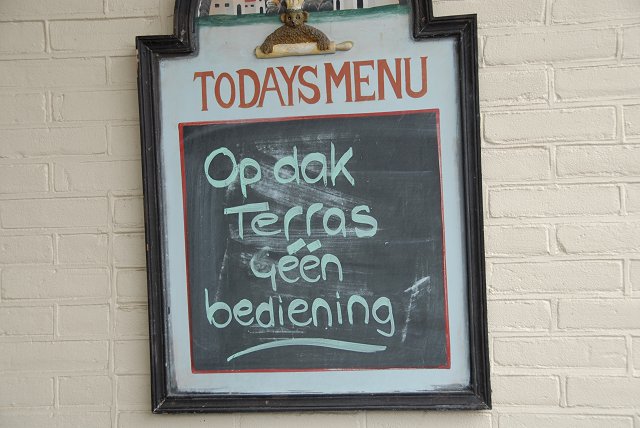 TODAYS MENU
Op dak
Terras
géén
bediening